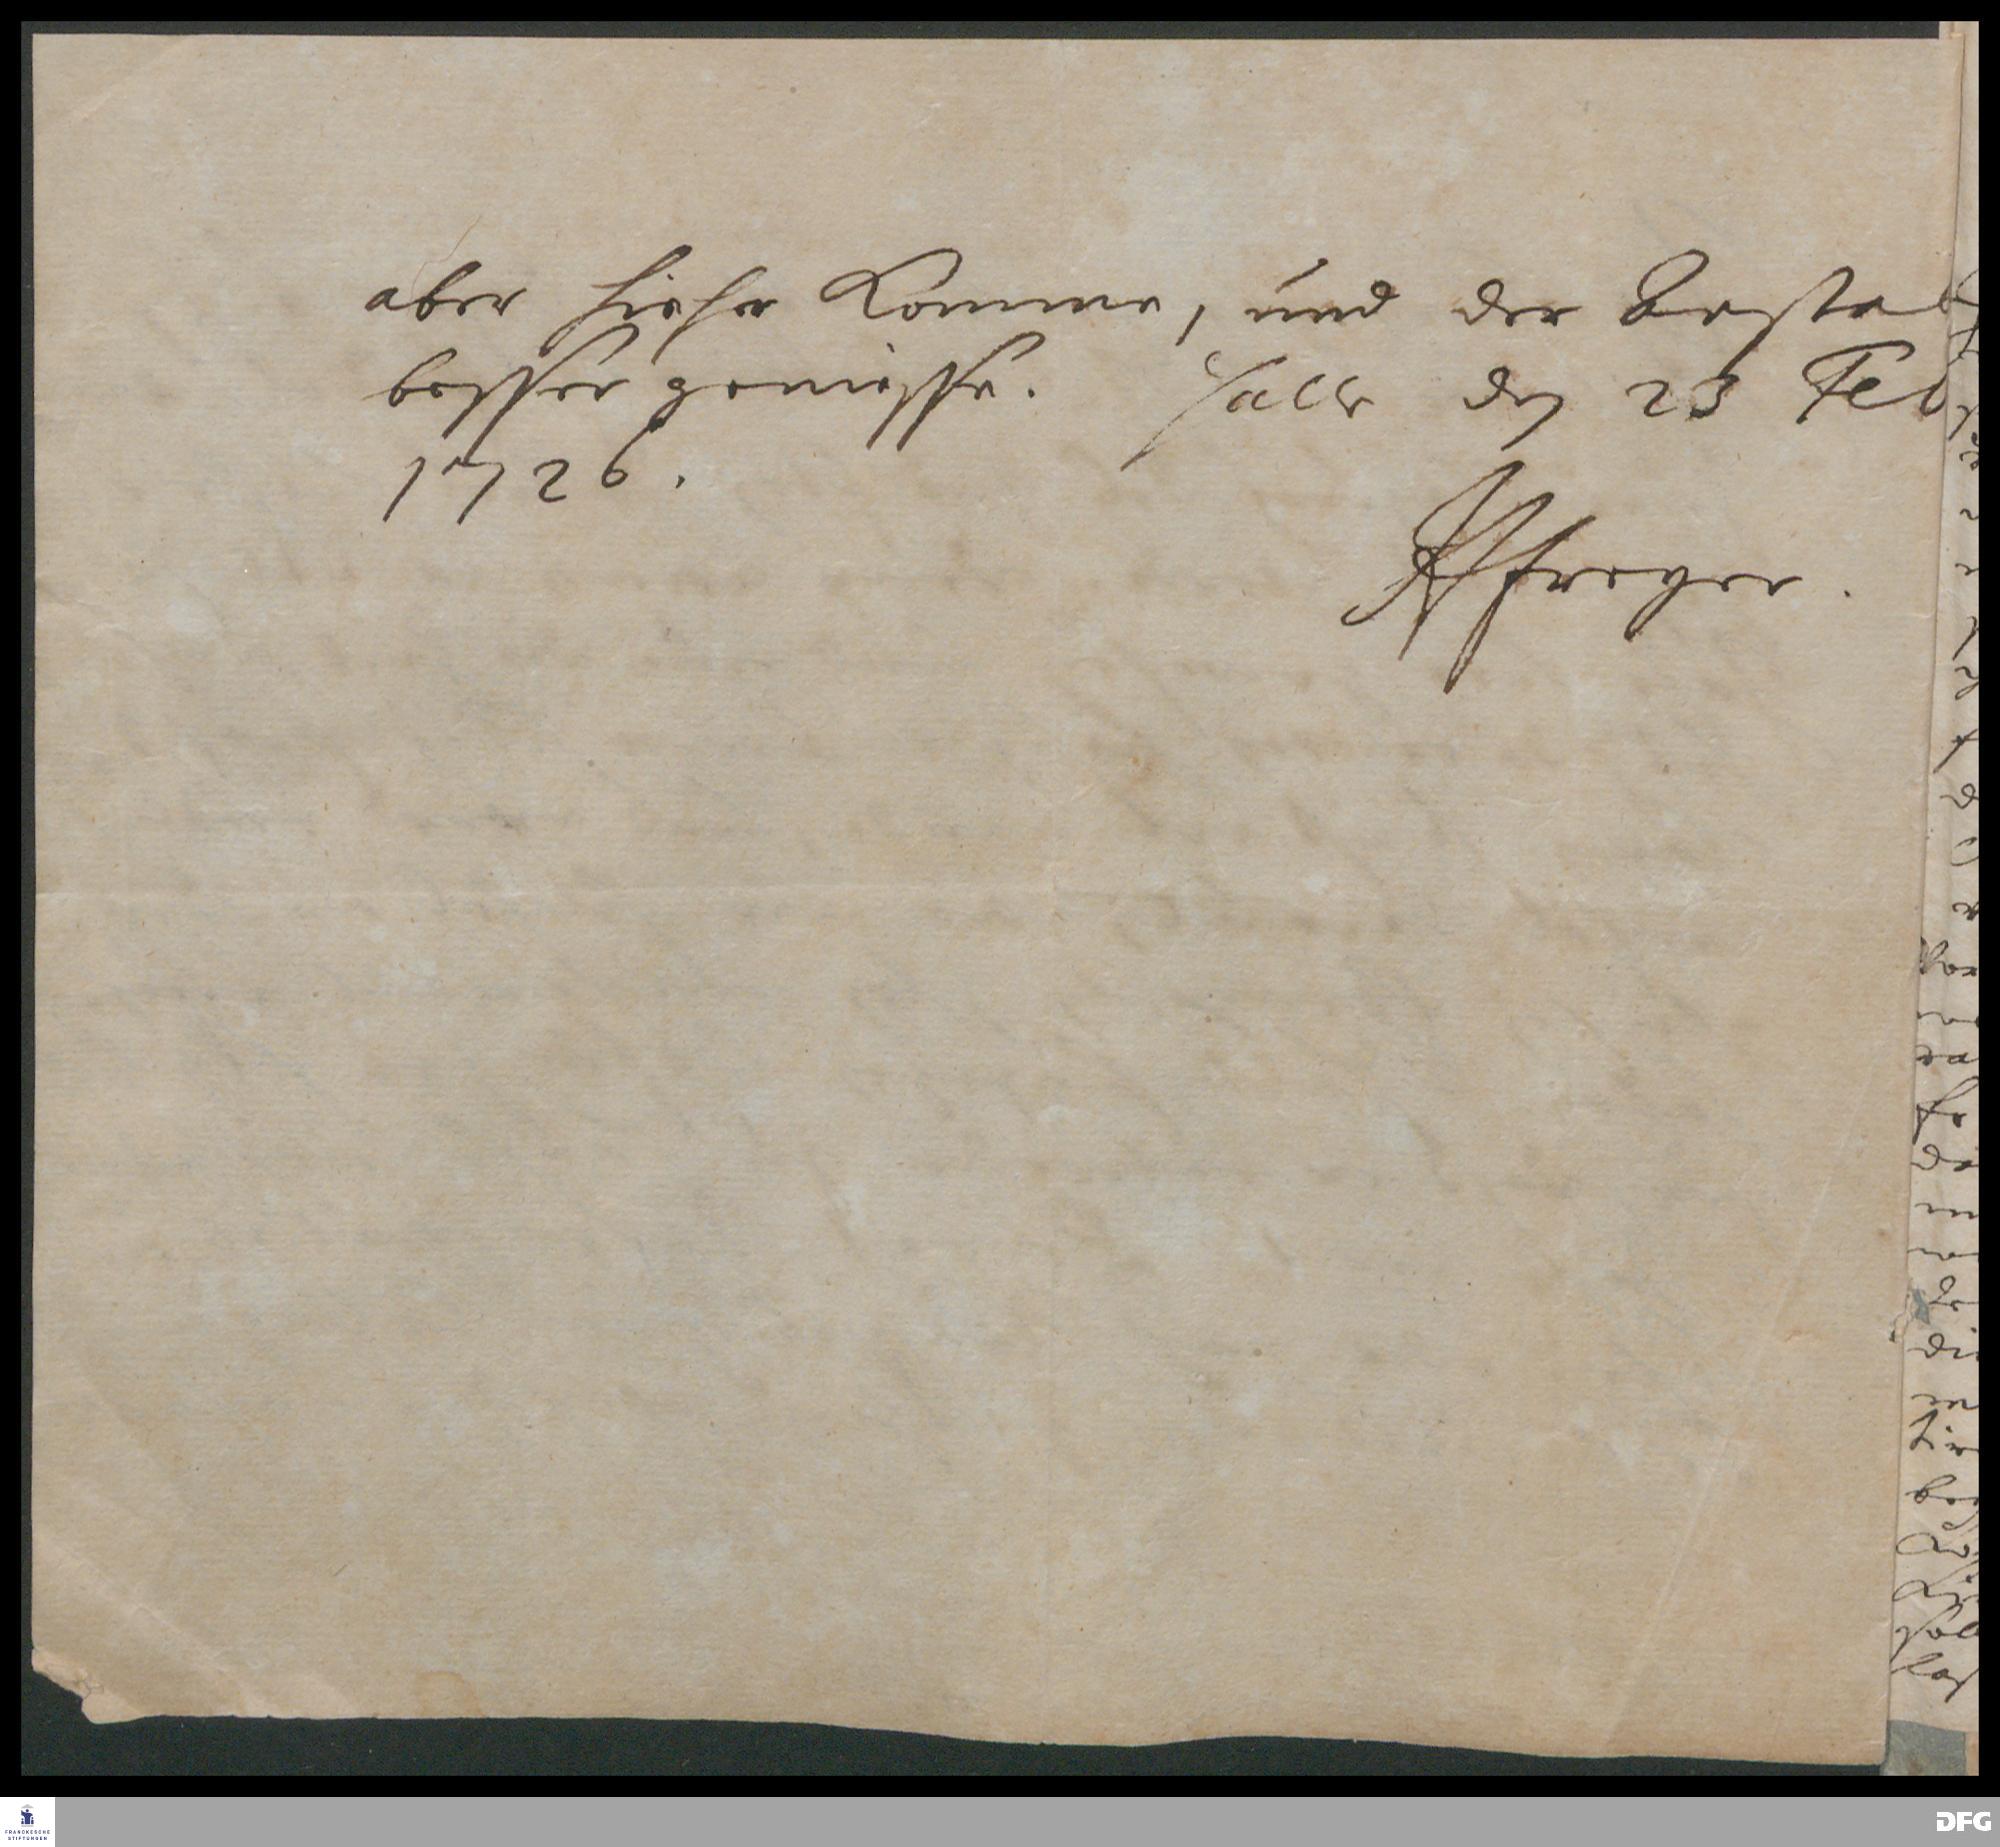 aber hieher komme, und der Anstal
besser geniesse. Halle den 23 Feb
1726.
HFreyer.
FRANCKESCHE
STIFTUNGEN
DFG